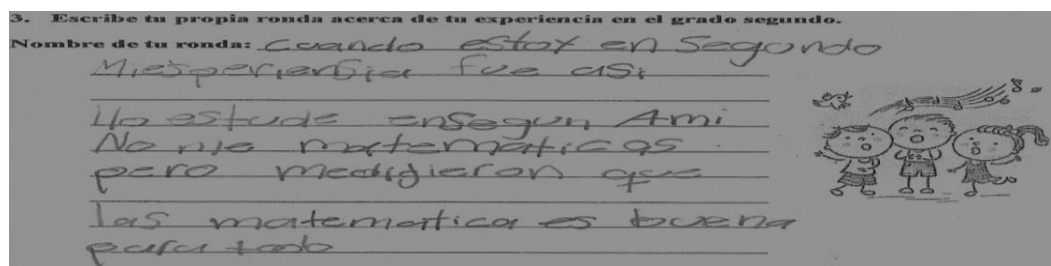 3. Escribe tu propia ronda acerca de tu experiencia en el grado segundo.
Nombre de tu ronda: Cuando estoy en Segundo
Miesperiensia fue asi
Yo estude ensegun Ami
No me matematicas
pero medigieron que
las matematica es buena
para todo